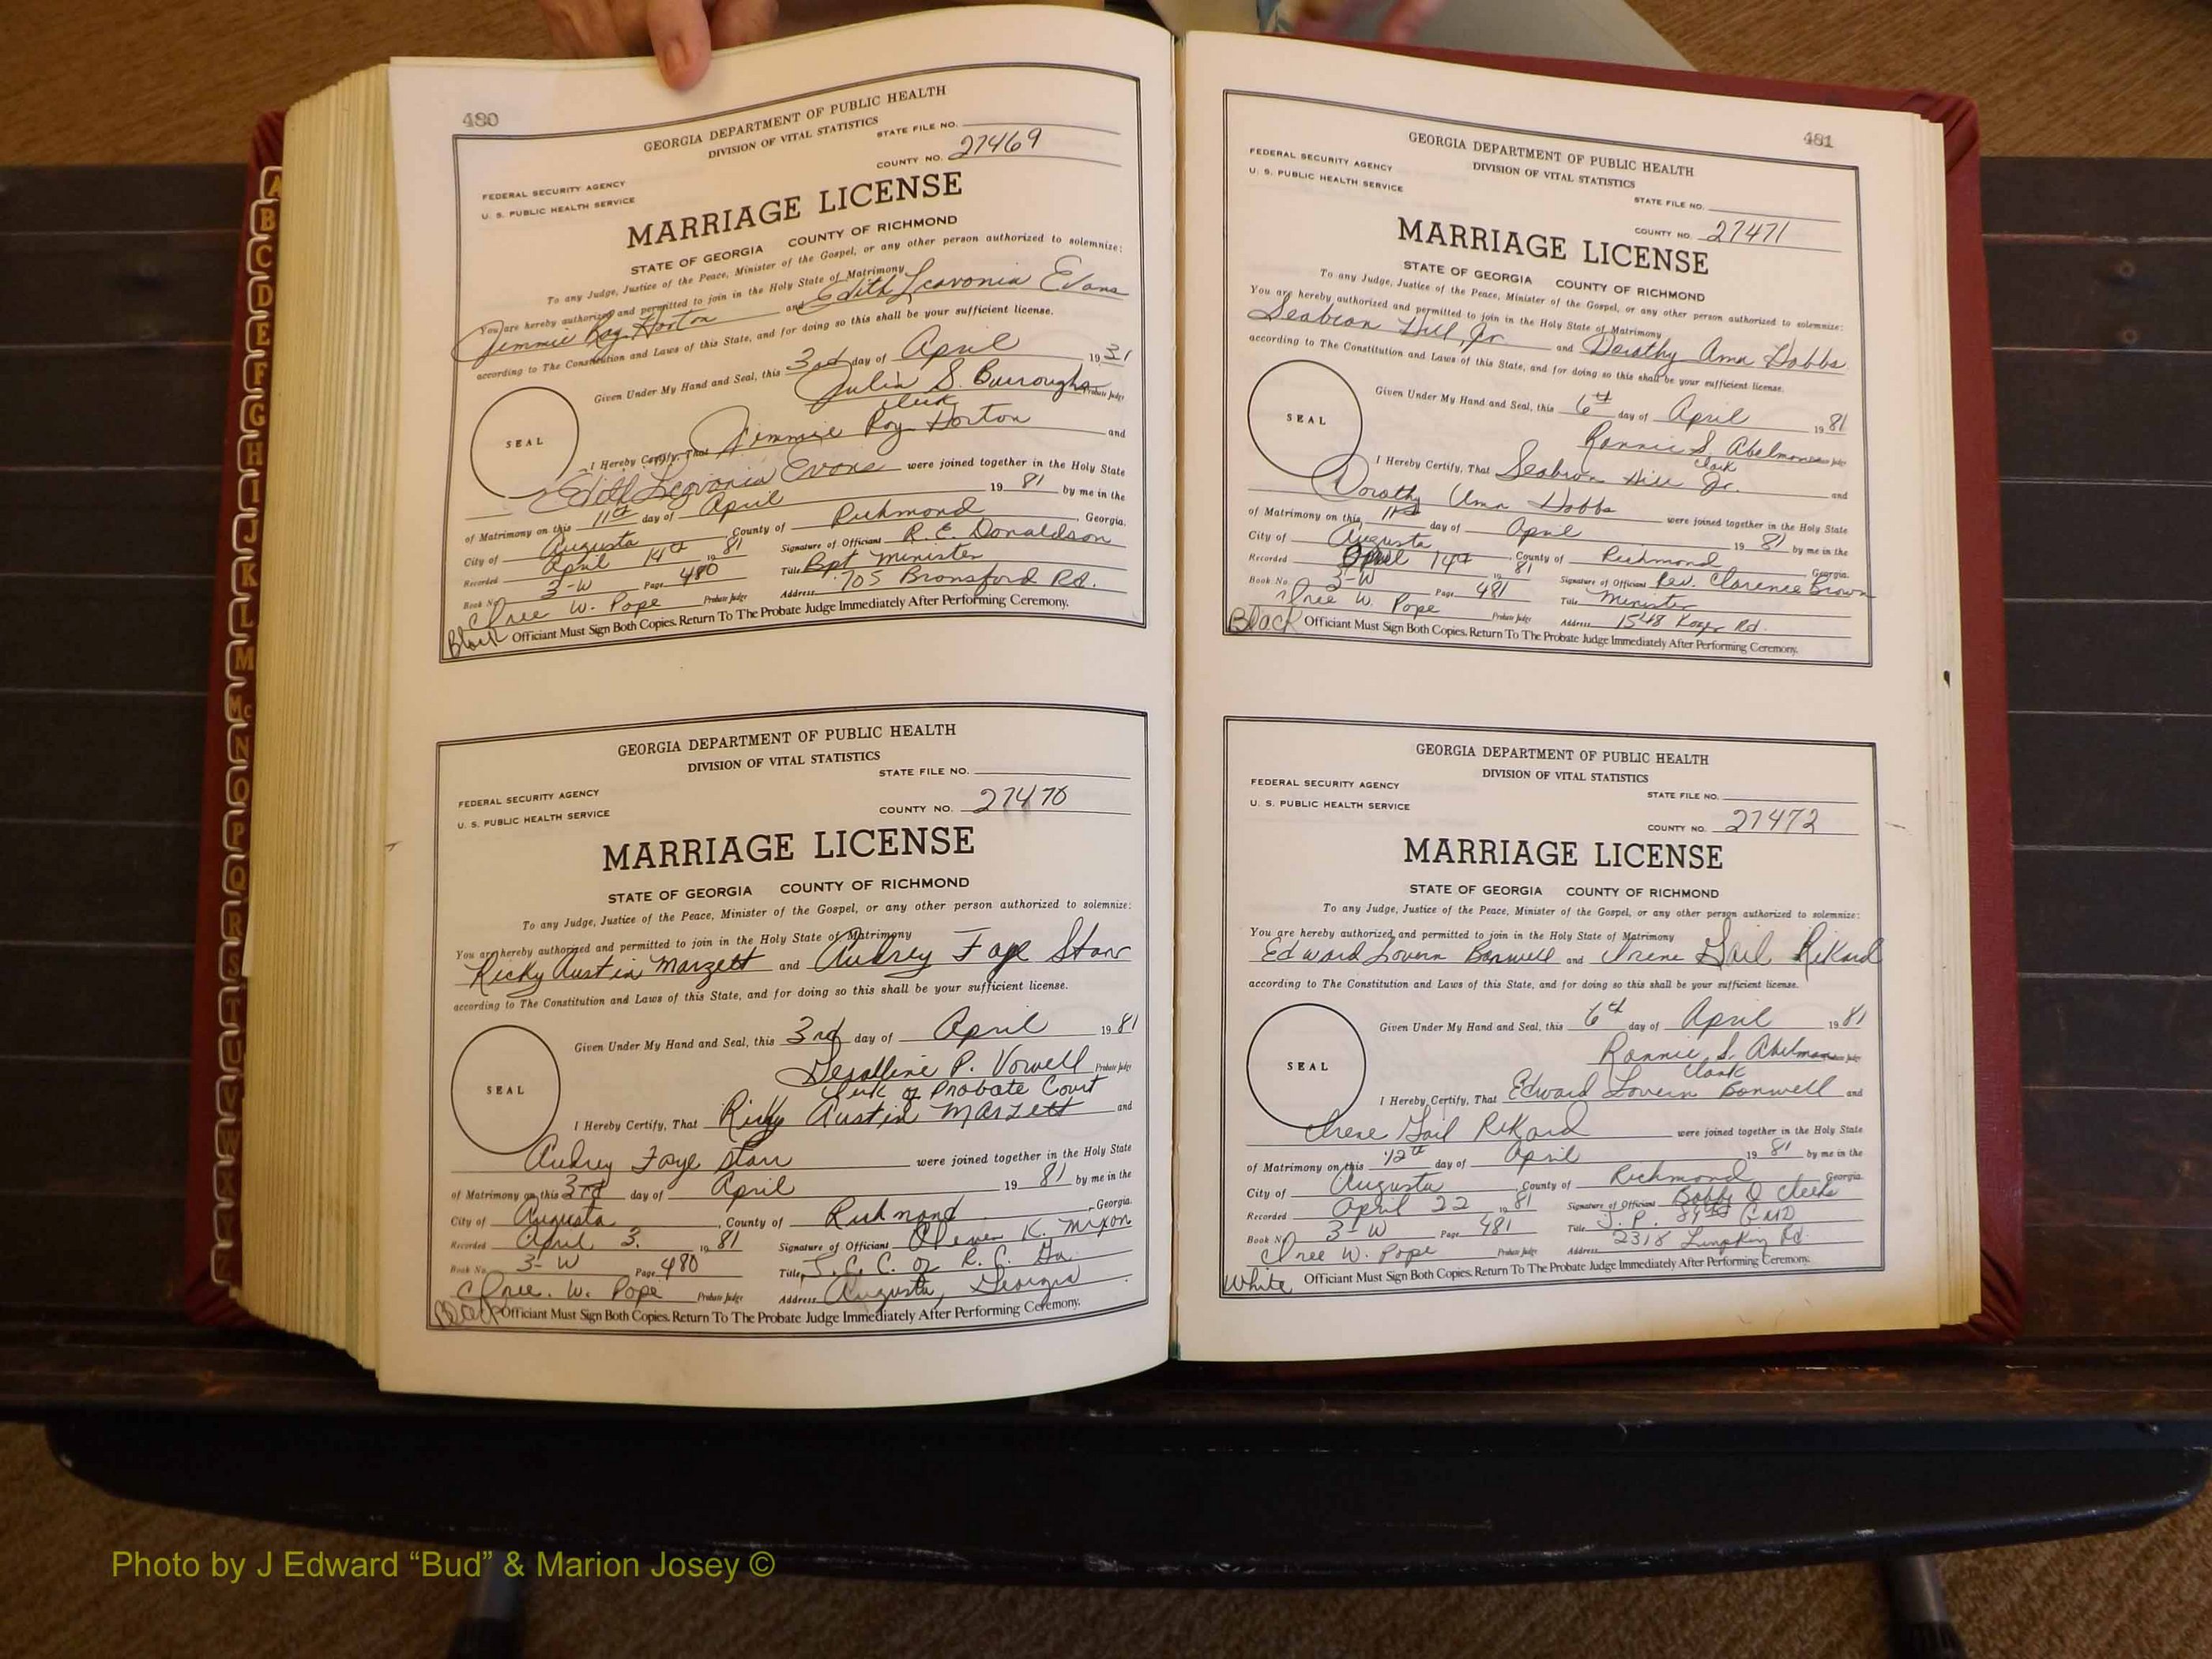 480
GEORGIA DEPARTMENT OF PUBLIC HEALTH
DIVISION OF VITAL STATISTICS
STATE FILE NO.
COUNTY NO. 27469
FEDERAL SECURITY AGENCY
U. S. PUBLIC HEALTH SERVICE
MARRIAGE LICENSE
STATE OF GEORGIA COUNTY OF RICHMOND
To any Judge, Justice of the Peace, Minister of the Gospel, or any other person authorized to solemnize:
You are hereby authorized and permitted to join in the Holy State of Matrimony
Jimmie Roy Horton and Edith Leavonia Evans
according to The Constitution and Laws of this State, and for doing so this shall be your sufficient license.
Given Under My Hand and Seal, this 3rd day of April 19 81
Julia S. Burroughs Probate Judge
Clerk
SEAL
I Hereby Certify, That Jimmie Roy Horton and
Edith Leavonia Evans were joined together in the Holy State
of Matrimony on this 11th day of April 19 81 by me in the
City of Augusta, County of Richmond, Georgia.
Recorded April 14th 19 81 Signature of Officiant R. E. Donaldson
Book No. 3-W Page 480 Title Bpt Minister
Iree W. Pope Probate Judge Address 705 Bransford Rd.
Black Officiant Must Sign Both Copies. Return To The Probate Judge Immediately After Performing Ceremony.
GEORGIA DEPARTMENT OF PUBLIC HEALTH
DIVISION OF VITAL STATISTICS
STATE FILE NO.
FEDERAL SECURITY AGENCY
U. S. PUBLIC HEALTH SERVICE
COUNTY NO. 27470
MARRIAGE LICENSE
STATE OF GEORGIA COUNTY OF RICHMOND
To any Judge, Justice of the Peace, Minister of the Gospel, or any other person authorized to solemnize:
You are hereby authorized and permitted to join in the Holy State of Matrimony
Ricky Austin Marzett and Audrey Faye Starr
according to The Constitution and Laws of this State, and for doing so this shall be your sufficient license.
Given Under My Hand and Seal, this 3rd day of April 19 81
Geralline P. Vowell Probate Judge
Clerk of Probate Court
SEAL
I Hereby Certify, That Ricky Austin Marzett and
Audrey Faye Starr were joined together in the Holy State
of Matrimony on this 3rd day of April 19 81 by me in the
City of Augusta, County of Richmond, Georgia.
Recorded April 3. 19 81 Signature of Officiant K. Mixon
Book No. 3-W Page 480 Title J. C. C. of R. C. Ga.
Iree. W. Pope Probate Judge Address Augusta, Georgia
Black Officiant Must Sign Both Copies. Return To The Probate Judge Immediately After Performing Ceremony.
481
GEORGIA DEPARTMENT OF PUBLIC HEALTH
DIVISION OF VITAL STATISTICS
FEDERAL SECURITY AGENCY
U. S. PUBLIC HEALTH SERVICE
STATE FILE NO.
COUNTY NO. 27471
MARRIAGE LICENSE
STATE OF GEORGIA COUNTY OF RICHMOND
To any Judge, Justice of the Peace, Minister of the Gospel, or any other person authorized to solemnize:
You are hereby authorized and permitted to join in the Holy State of Matrimony
Seabron Hill, Jr and Dorothy Ann Hobbs
according to The Constitution and Laws of this State, and for doing so this shall be your sufficient license.
Given Under My Hand and Seal, this 6th day of April 19 81
Ronnie S. Abelman Probate Judge
Clerk
SEAL
I Hereby Certify, That Seabron Hill Jr. and
Dorothy Ann Hobbs were joined together in the Holy State
of Matrimony on this 11th day of April 19 81 by me in the
City of Augusta, County of Richmond Georgia.
Recorded April 14th 19 81 Signature of Officiant Rev. Clarence Brown
Book No. 3-W Page 481 Title Minister
Iree W. Pope Probate Judge Address 1548 Rd.
Black Officiant Must Sign Both Copies. Return To The Probate Judge Immediately After Performing Ceremony.
GEORGIA DEPARTMENT OF PUBLIC HEALTH
DIVISION OF VITAL STATISTICS
FEDERAL SECURITY AGENCY
U. S. PUBLIC HEALTH SERVICE
STATE FILE NO.
COUNTY NO. 27472
MARRIAGE LICENSE
STATE OF GEORGIA COUNTY OF RICHMOND
To any Judge, Justice of the Peace, Minister of the Gospel, or any other person authorized to solemnize:
You are hereby authorized and permitted to join in the Holy State of Matrimony
Edward Lovern Bonwell and Irene Gail Rikard
according to The Constitution and Laws of this State, and for doing so this shall be your sufficient license.
Given Under My Hand and Seal, this 6th day of April 19 81
Ronnie S. Abelman Probate Judge
Clerk
SEAL
I Hereby Certify, That Edward Lovern Bonwell and
Irene Gail Rikard were joined together in the Holy State
of Matrimony on this 12th day of April 19 81 by me in the
City of Augusta, County of Richmond Georgia.
Recorded April 22 19 81 Signature of Officiant Bobby D Cheeks
Book No. 3-W Page 481 Title J. P. GMD
Iree W. Pope Probate Judge Address 2318 Lumpkin Rd.
White Officiant Must Sign Both Copies. Return To The Probate Judge Immediately After Performing Ceremony.
A
B
C
D
E
F
G
H
I
J
K
L
M
Mc
N
O
P
Q
R
S
T
U
V
W
X
Y
Z
Photo by J Edward “Bud” & Marion Josey ©